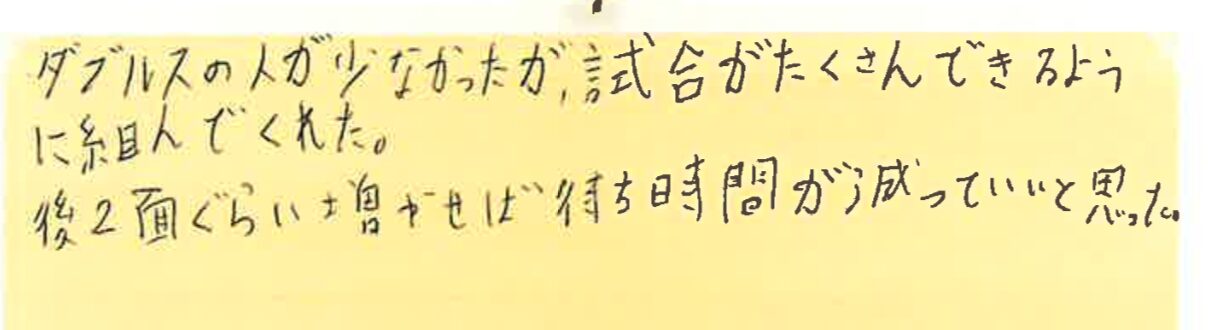 ダブルスの人が少なかったが、試合がたくさんできるよう
に組んでくれた。
後2面ぐらい増やせば待ち時間が減っていいと思った。